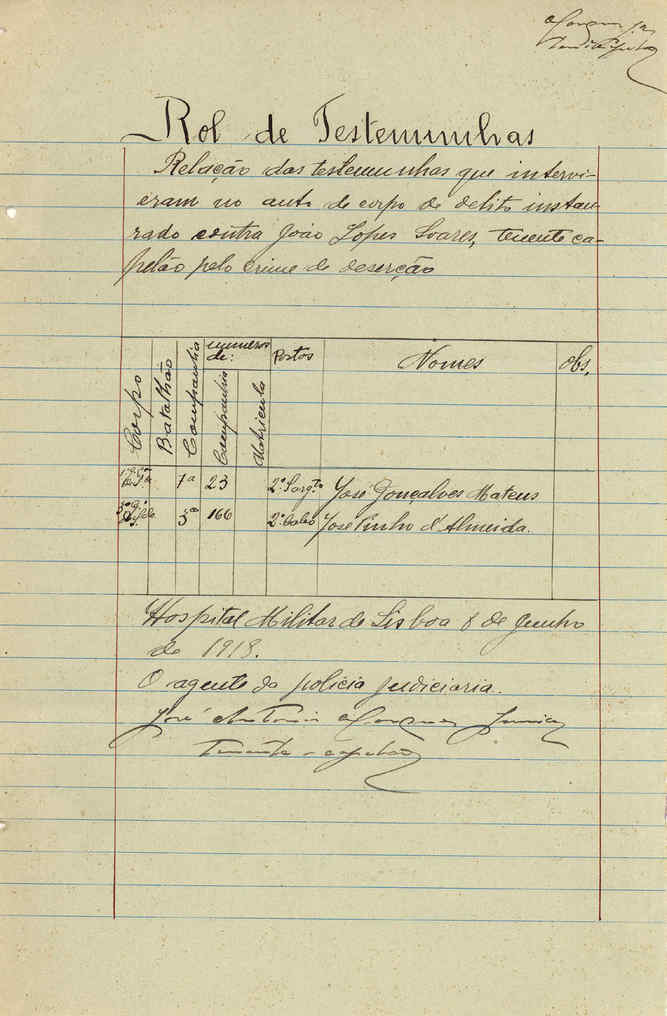 Rol de Testemunhas
Relação das testemunhas que intervi-
eram no auto de corpo de delito instau-
rado contra João Lopes Soares, tenente ca-
pelão pelo crime de deserção
Corpo Batalhão Companhia numeros de: Companhia Matricula Postos Nomes Obs.
1ª 23 2º Sargtº José Gonçalves Mateus
5ª 166 2º Cabo José Pinho d'Almeida.
Hospital Militar de Lisboa 8 de Junho
de 1918.
O agente da policia judiciaria.
José Antonio Junior
Tenente capelão